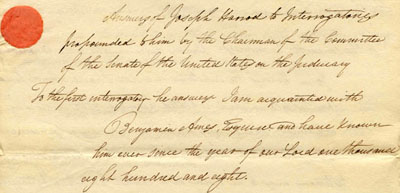 Answers of Joseph Harrod to Interrogatories
propounded to him by the Chairman of the Committee
of the Senate of the United States on the Judiciary
To the first interrogatory he answers I am acquainted with
Benjamin Ames, Esquire and have known
him ever since the year of our Lord one thousand
eight hundred and eight.